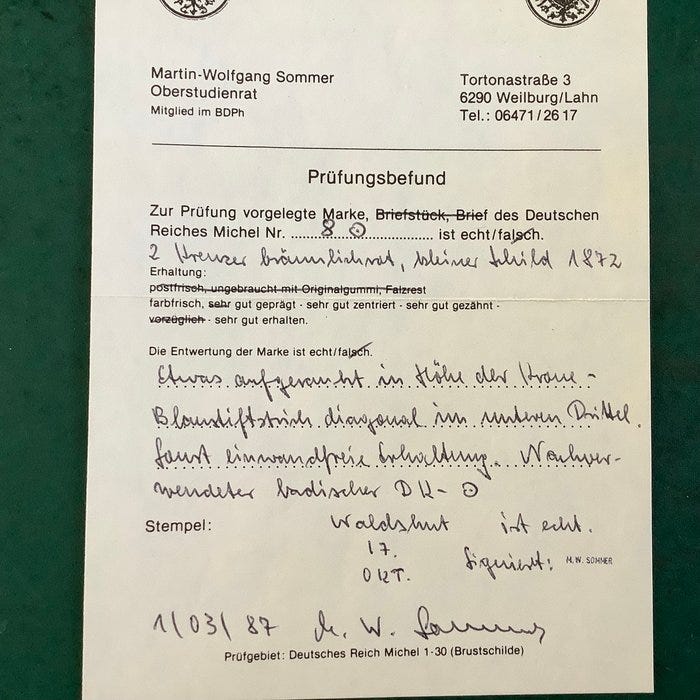 Martin-Wolfgang Sommer
Oberstudienrat
Mitglied im BDPh
Tortonastraße 3
6290 Weilburg/Lahn
Tel.: 06471/26 17
Prüfungsbefund
Zur Prüfung vorgelegte Marke, Briefstück, Brief des Deutschen
Reiches Michel Nr. ........8 ⊙................ ist echt/falsch.
2 Kreuzer bräunlichrot, kleiner Schild 1872
Erhaltung:
postfrisch, ungebraucht mit Originalgummi, Falzrest
farbfrisch, sehr gut geprägt - sehr gut zentriert - sehr gut gezähnt -
vorzüglich - sehr gut erhalten.
Die Entwertung der Marke ist echt/falsch.
Etwas aufgerauht in Höhe der Krone -
Blaustiftstrich diagonal im unteren Drittel.
Sonst einwandfreie Erhaltung. Nachver-
wendeter badischer DK-⊙
Stempel: Waldshut ist echt.
17.
OKT.
Signiert: M. W. SOMMER
1/03/87 M. W. Sommer
Prüfgebiet: Deutsches Reich Michel 1-30 (Brustschilde)